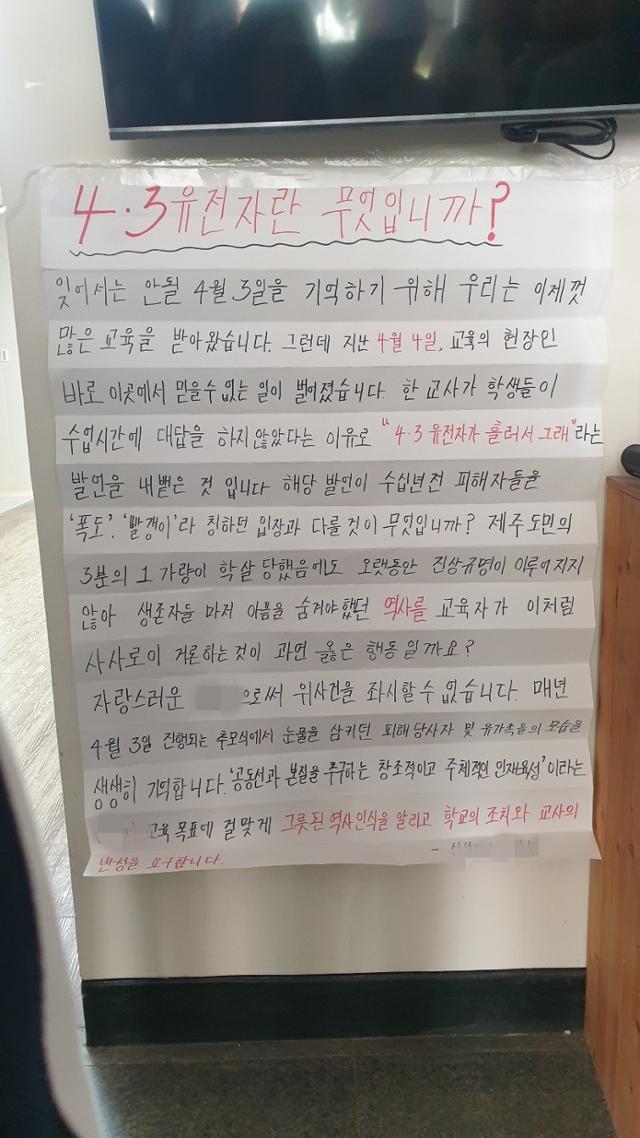 4·3유전자란 무엇입니까?
잊어서는 안될 4월 3일을 기억하기 위해 우리는 이제껏
많은 교육을 받아왔습니다. 그런데 지난 4월 4일, 교육의 현장인
바로 이곳에서 믿을수 없는 일이 벌어졌습니다. 한 교사가 학생들이
수업시간에 대답을 하지 않았다는 이유로 "4·3 유전자가 흘러서 그래"라는
발언을 내뱉은 것 입니다. 해당 발언이 수십년전 피해자들을
'폭도', '빨갱이'라 칭하던 입장과 다를것이 무엇입니까? 제주도민의
3분의 1 가량이 학살 당했음에도 오랫동안 진상규명이 이루어지지
않아 생존자들 마저 아픔을 숨겨야했던 역사를 교육자가 이처럼
사사로이 거론하는것이 과연 옳은 행동일까요?
자랑스러운 으로써 위사건을 좌시할수 없습니다. 매년
4월 3일 진행되는 추모식에서 눈물을 삼키던 피해당사자 및 유가족들의 모습을
생생히 기억합니다. '공동선과 본질을 추구하는 창조적이고 주체적인 인재육성'이라는
교육목표에 걸맞게 그릇된 역사인식을 알리고 학교의 조치와 교사의
반성을 요구합니다.